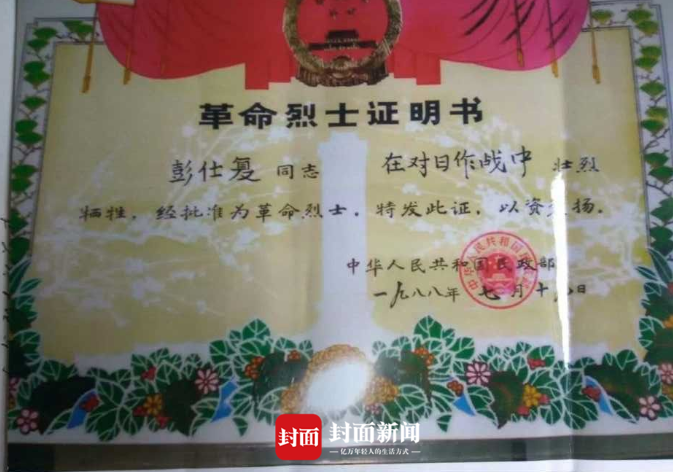 革命烈士证明书
彭仕复 同志 在对日作战中 壮烈
牺牲，经批准为革命烈士。特发此证，以资 扬。
中华人民共和国民政部
一九八八年 七月十 日
封面 封面新闻
亿万年轻人的生活方式